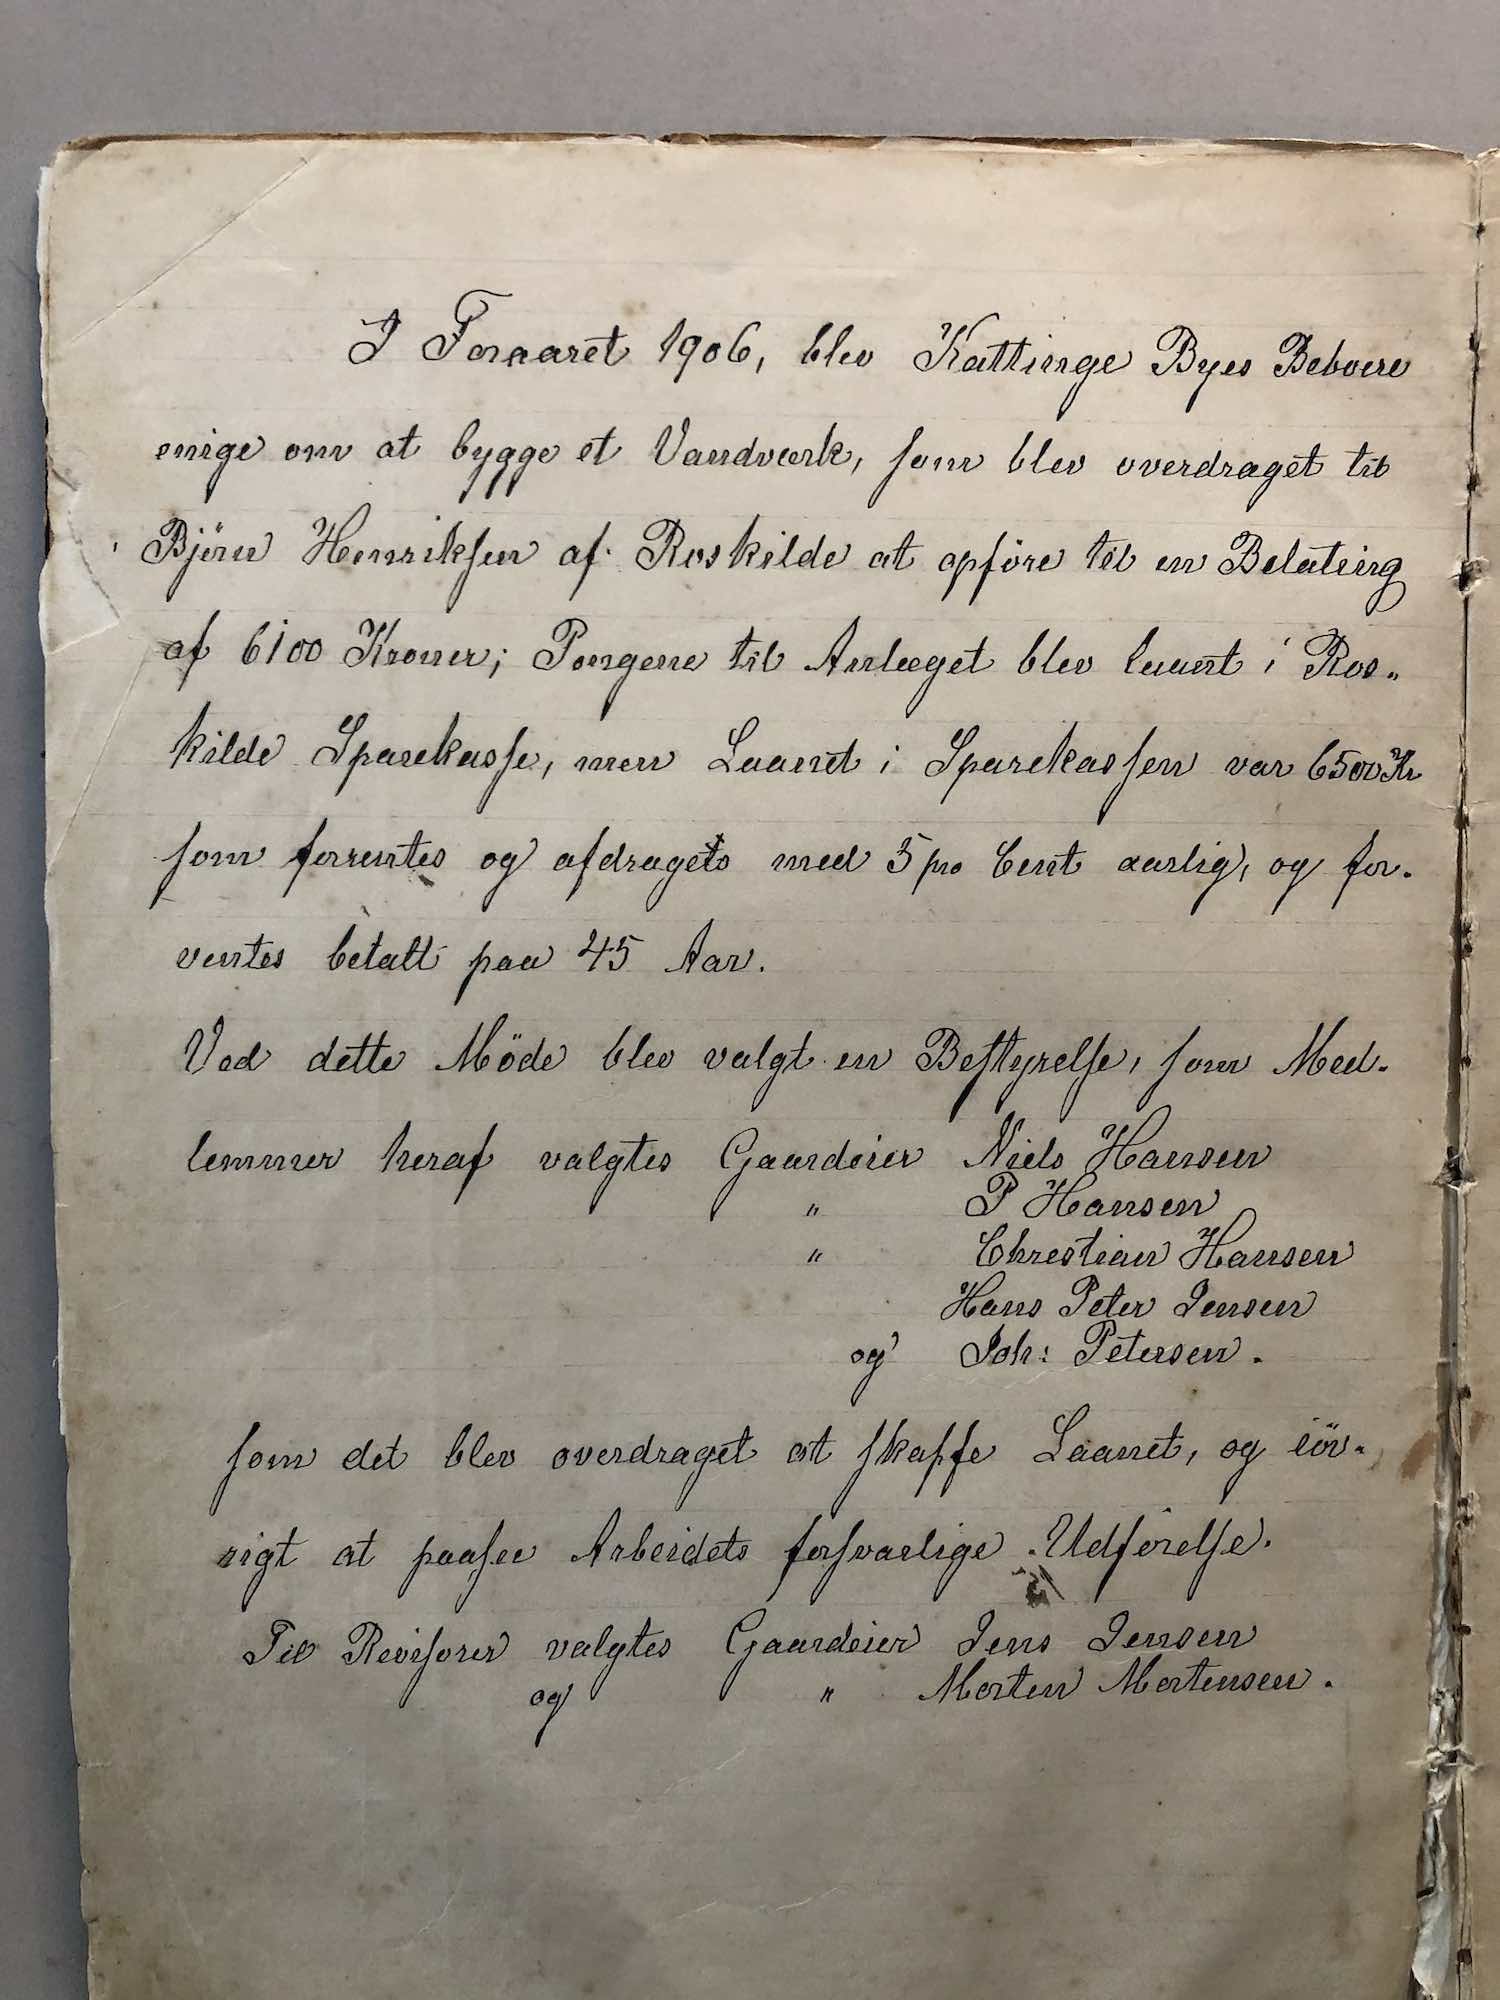 I Foraaret 1906, blev Kattinge Byes Beboere
enige om at bygge et Vandværk, som blev overdraget til
Björn Henriksen af Roskilde at opföre til en Belating
af 6100 Kroner; Pengene til Anlæget blev laant i Ros„
kilde Sparekasse, men Laanet i Sparekassen var 6500 Kr
som forrentes og afdragets med 5 pro Cent aarlig, og for-
ventes betalt paa 45 Aar.
Ved dette Möde blev valgt en Bestyrelse, som Med-
lemmer heraf valgtes Gaardeier Niels Hansen
" P Hansen
" Christian Hansen
Hans Peter Jensen
og Joh: Petersen.
som det blev overdraget at skaffe Laanet, og iöv-
rigt at paasee Arbeidets forsvarlige Udförelse.
Til Revisorer valgtes Gaardeier Jens Jensen
og " Morten Mortensen.